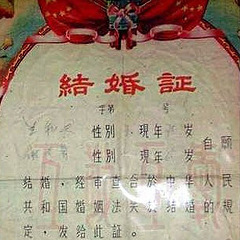 結婚証
字第 号
性别 現年 岁
性别 現年 岁
自願
結婚、経审查合於中华人民
共和国婚姻法关於結婚的規
定，发给此証。